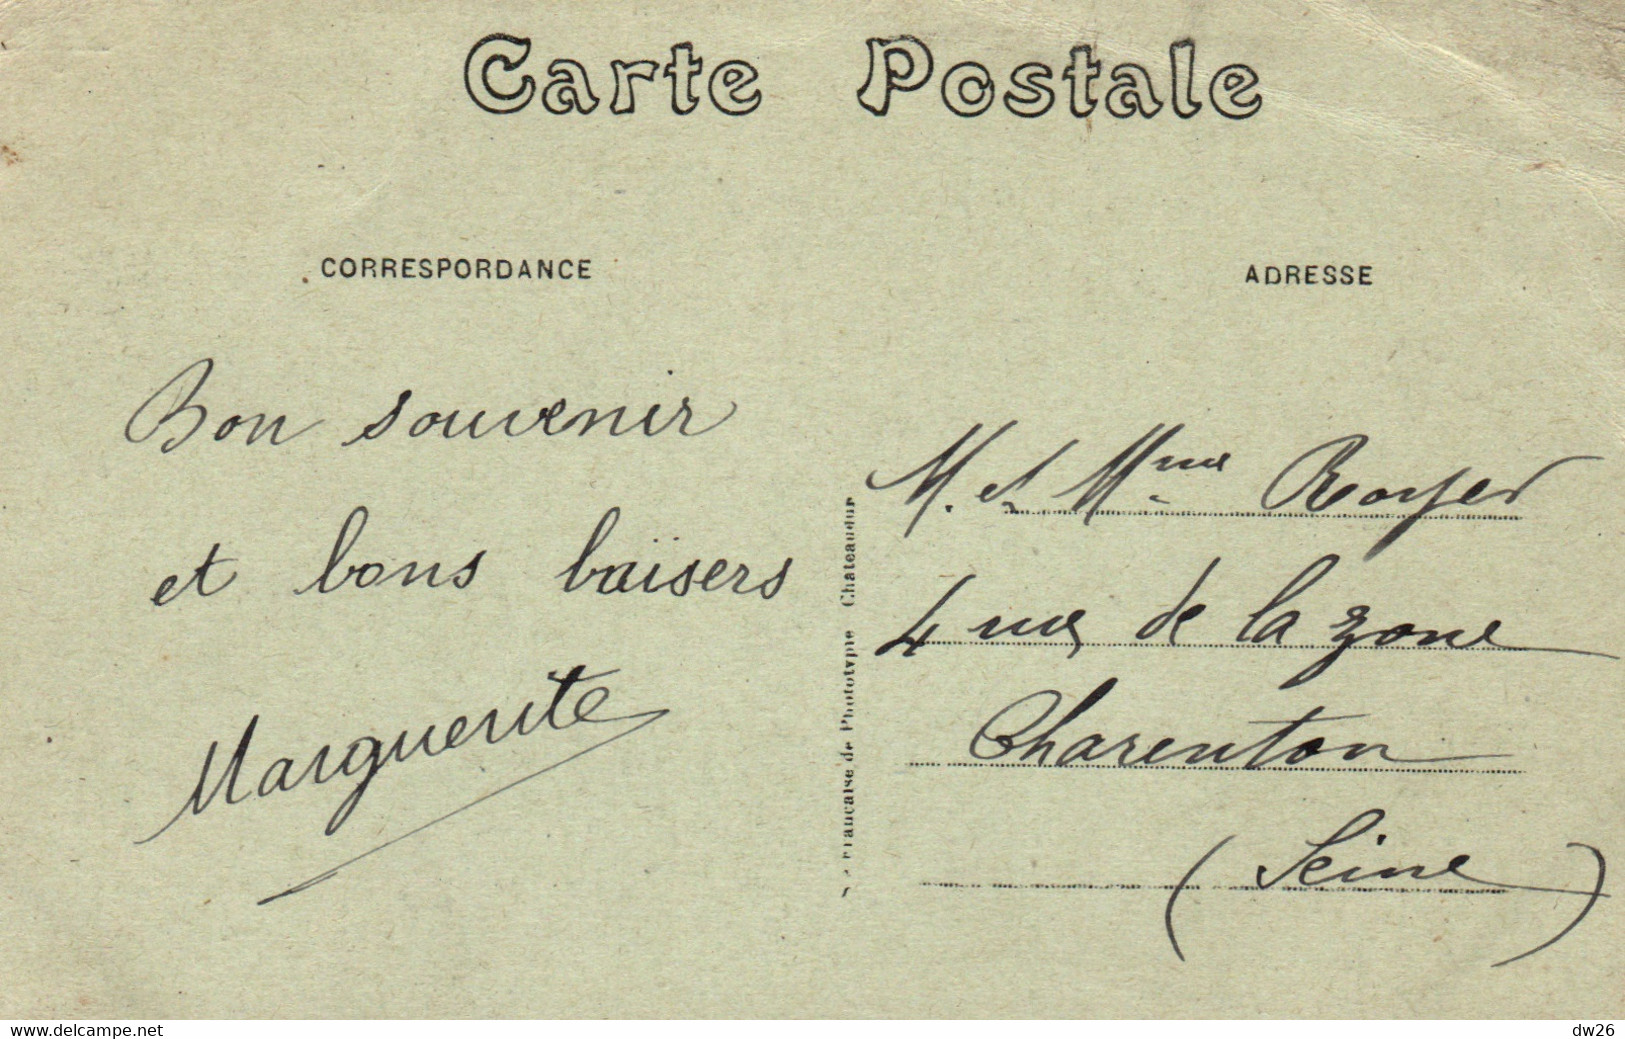 Carte Postale
CORRESPORDANCE
ADRESSE
Bon souvenir
et bons baisers
Marguerite
Française de Phototypie Chateaudur
M. et Mme Royer
4 rue de la zone
Charenton
(Seine)
www.delcampe.net
dw26